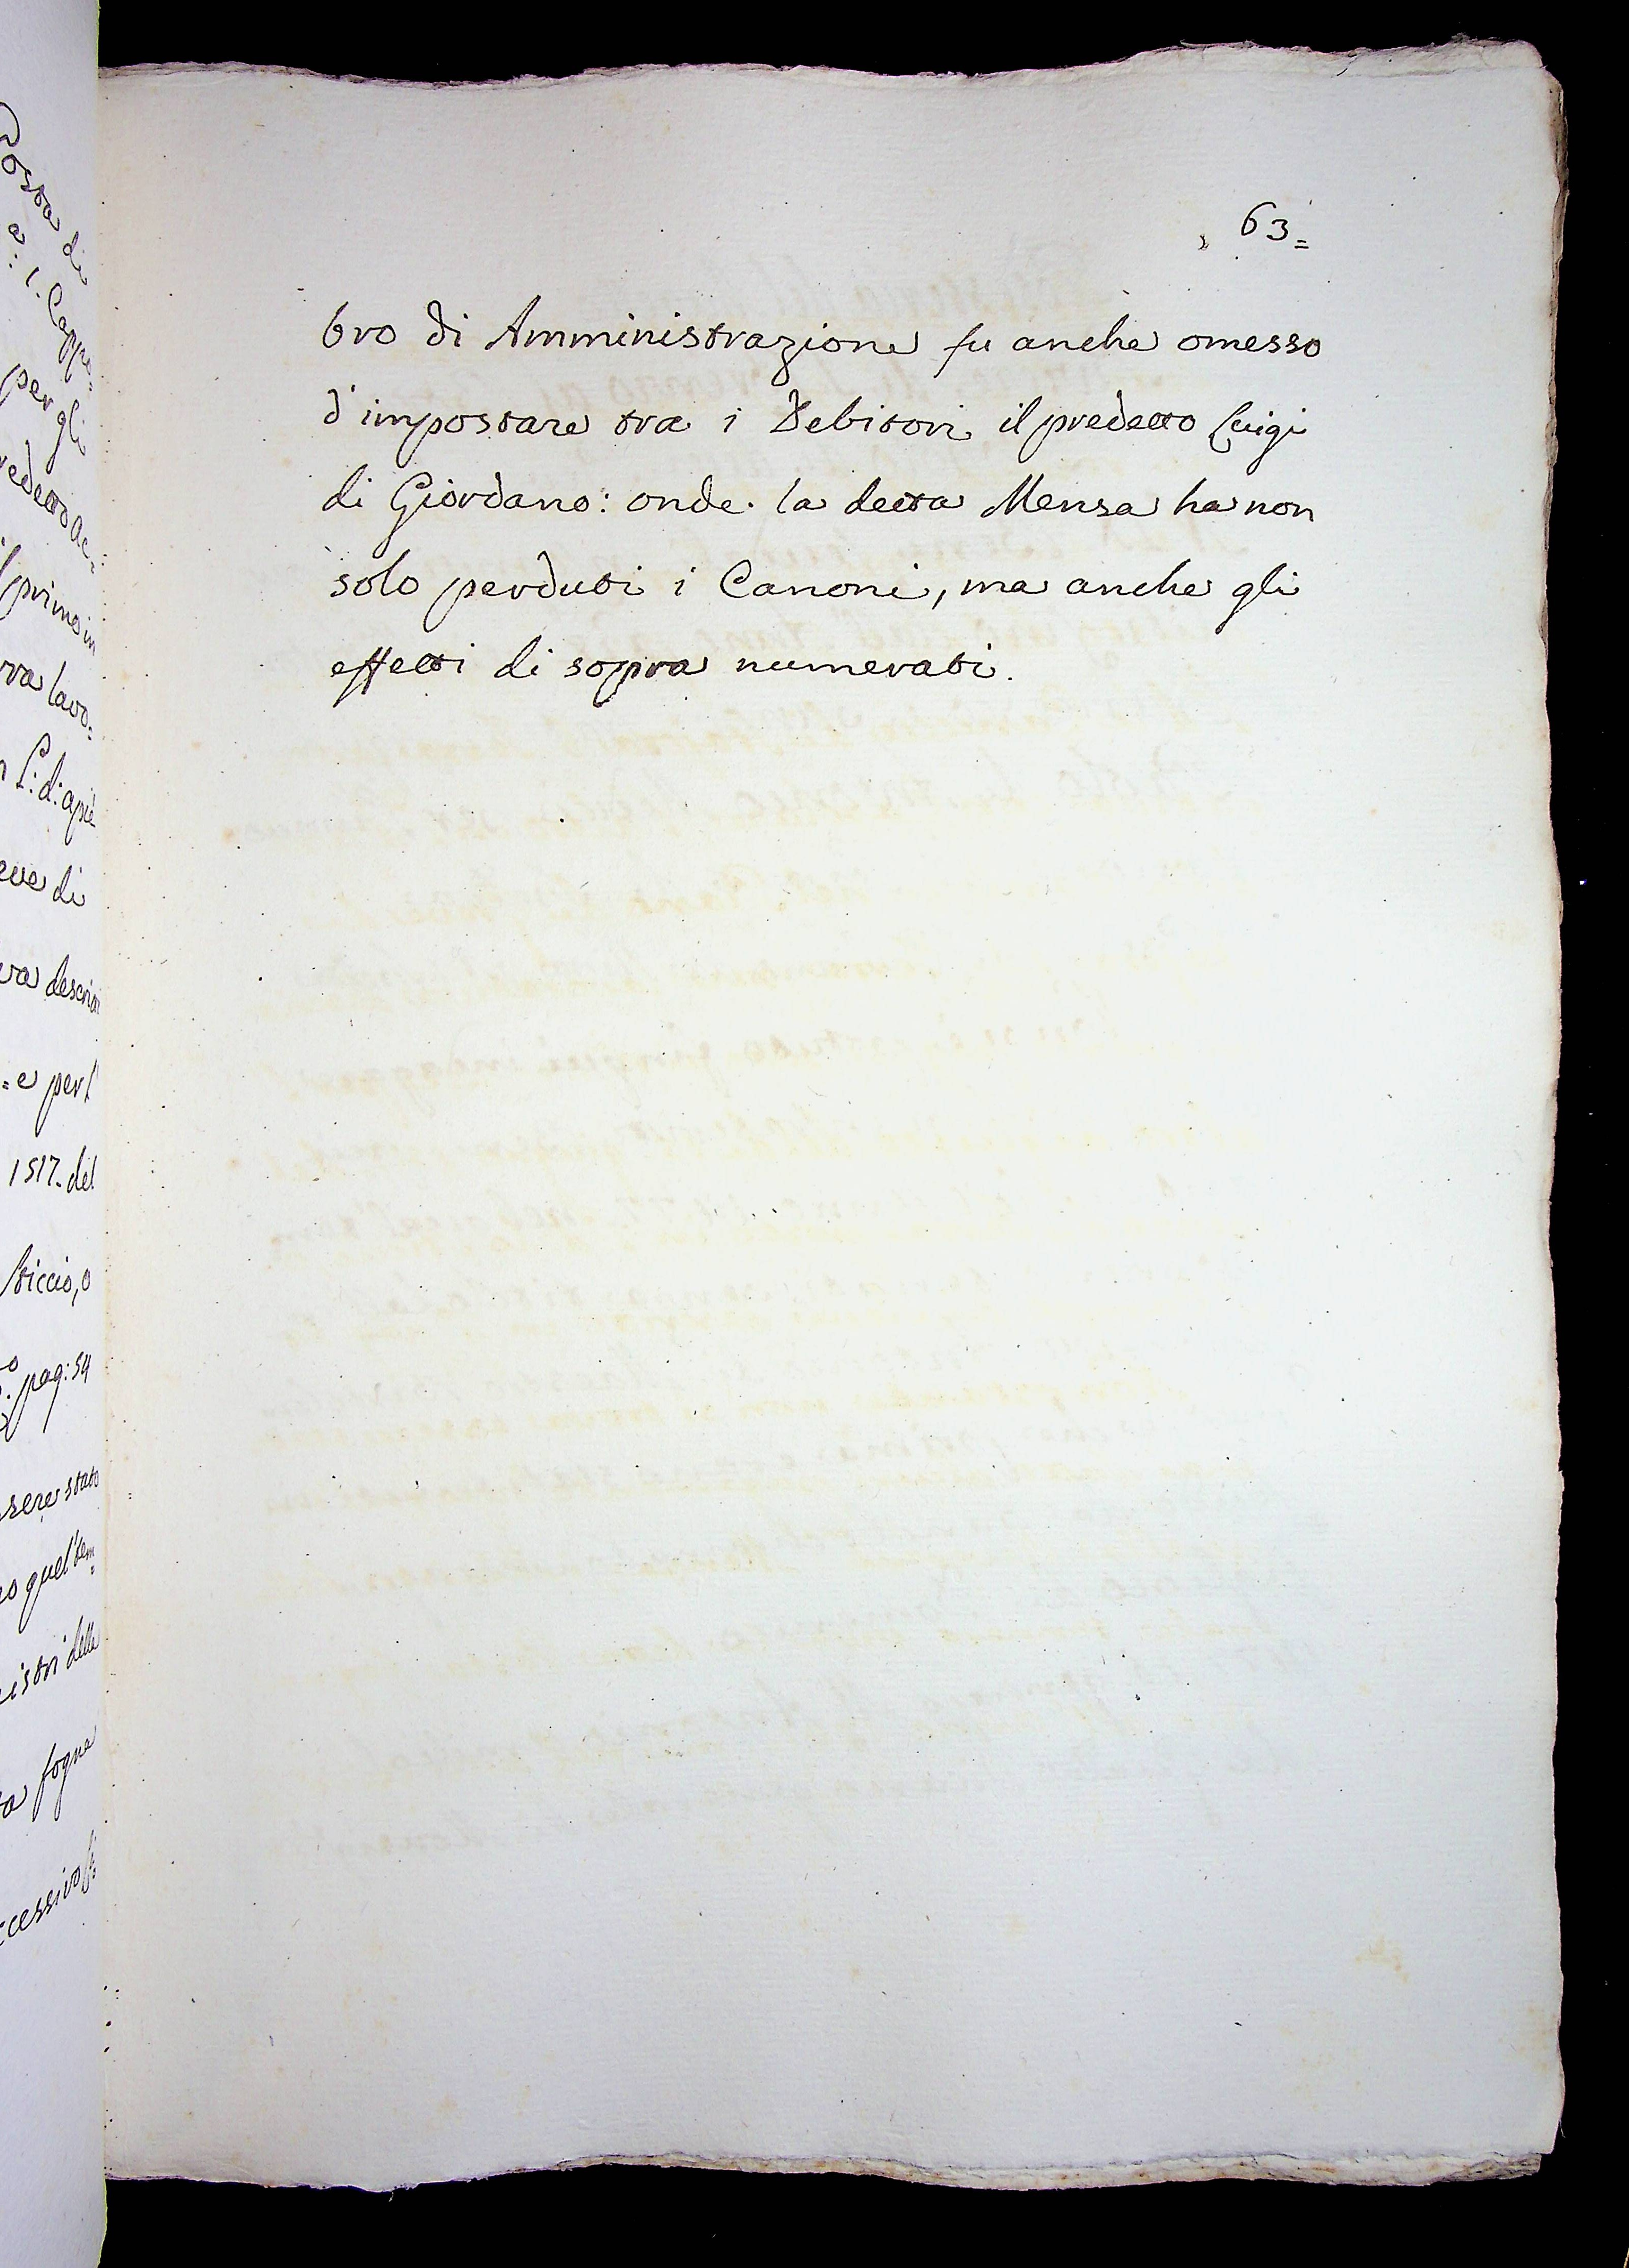 Posta di
a: 1. Cappo=
per gli
redetto ac=
primo in
rra lavo=
S:d: apiè
eve di
va descrit
=e per l'
1517. del
briccio, o
pag: 54
ssere stato
o quel tem=
istri della
fogna
ccessivo
, 63=
bro di Amministrazione fu anche omesso
d'impostare tra i Debitori il predetto Luigi
di Giordano: onde la detta Mensa ha non
solo perduti i Canoni, ma anche gli
effetti di sopra numerati.